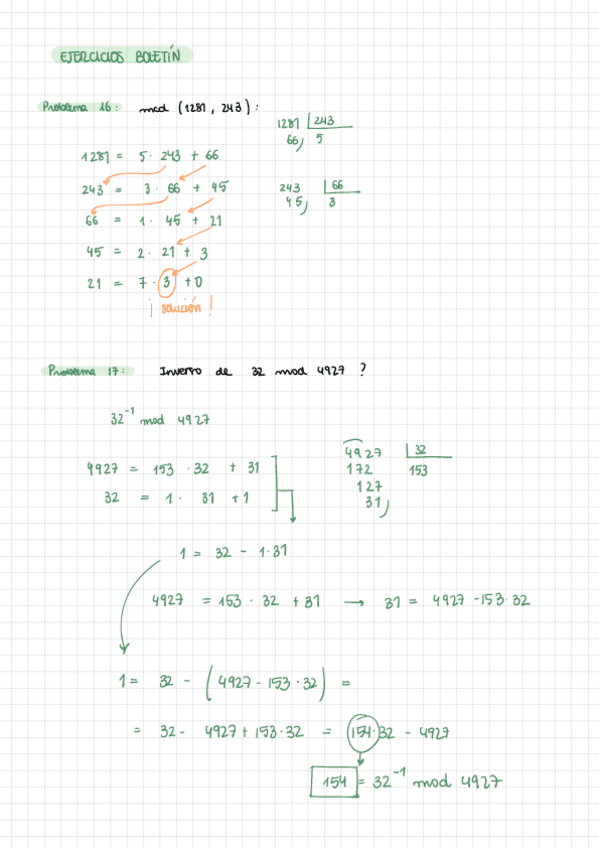 EJERCICIOS BOLETÍN
Problema 16: mcd (1281, 243):
1281 | 243
66, 5
1281 = 5 · 243 + 66
243 = 3 · 66 + 45
243 | 66
45, 3
66 = 1 · 45 + 21
45 = 2 · 21 + 3
21 = 7 · 3 + 0
¡ solución !
Problema 17: Inverso de 32 mod 4927 ?
32⁻¹ mod 4927
4927 | 32
172 153
127
31,
4927 = 153 · 32 + 31
32 = 1 · 31 + 1
1 = 32 - 1·31
4927 = 153 · 32 + 31 → 31 = 4927 - 153·32
1 = 32 - (4927 - 153·32) =
= 32 - 4927 + 153·32 = 154·32 - 4927
154 = 32⁻¹ mod 4927